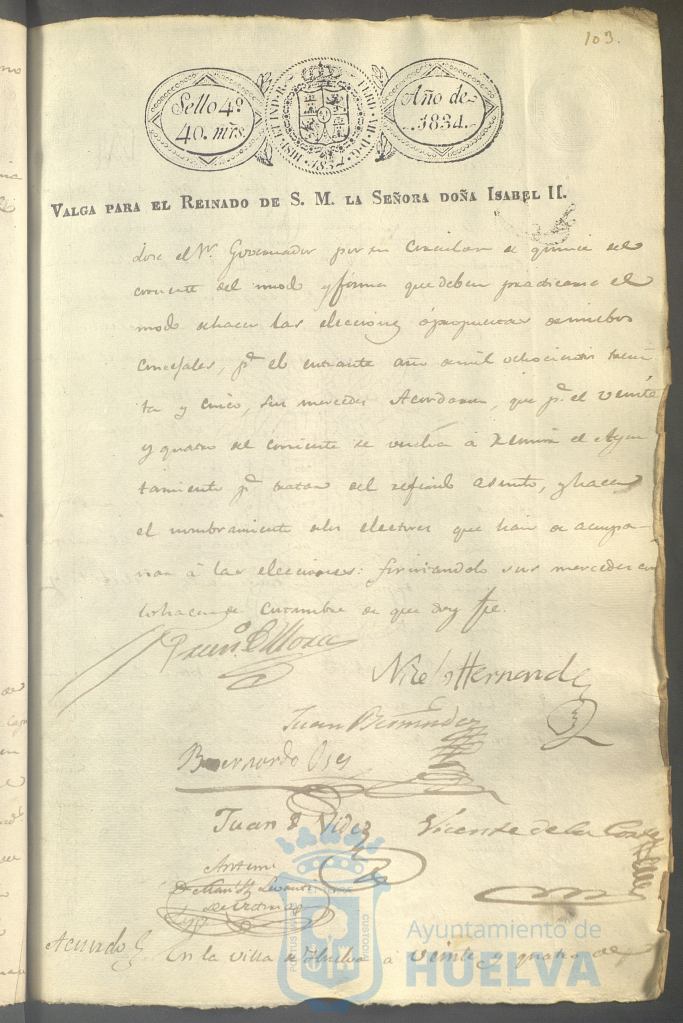 103.
Sello 4º
40. mrs.
HISP. ET IND. R. FERD. VII. D. G. 1834
Año de
1834.
VALGA PARA EL REINADO DE S. M. LA SEÑORA DOÑA ISABEL II.
el Sr. Governador por su Circular de quince del
corriente del modo y forma que deben practicarse el
modo de hacer las elecciones ó propuestas de nuebos
Concejales, pa. el entrante año de mil ochocientos trein
ta y cinco, sus mercedes Acordaron, que pa. el veinte
y quatro del corriente se vuelba á reunir el Ayun
tamiento pa. tratar del referido asunto, y hacer
el nombramiento de los electores que han de acompa-
ñar á las elecciones: firmandolo sus mercedes en
de costumbre de que doy fe.
Juan Bermudez
Bernardo Oses
Vicente de la Corte
Antemi
Acuerdo
En la villa de Huelva á veinte y quatro de
PORTUS MARIS CUSTODIA
Ayuntamiento de
HUELVA